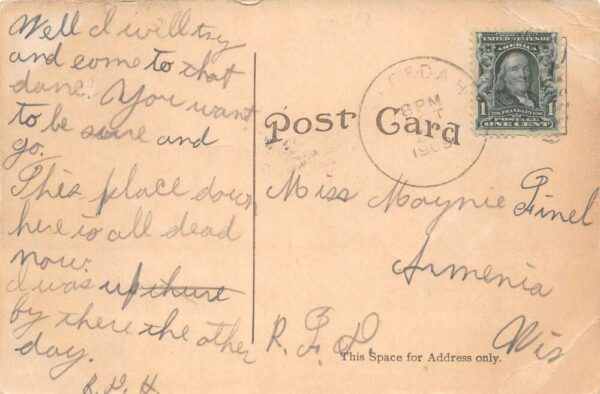 Well I will try
and come to that
dane. You want
to be sure and
go.
This place down
here is all dead
now.
I was up there
by there the other
day.
R. V. H.
Post Card
8 PM
UNITED STATES OF
AMERICA
1 1
FRANKLIN
POSTAGE
ONE CENT
Miss Maynie
Armenia
R. F. D. Wis
This Space for Address only.